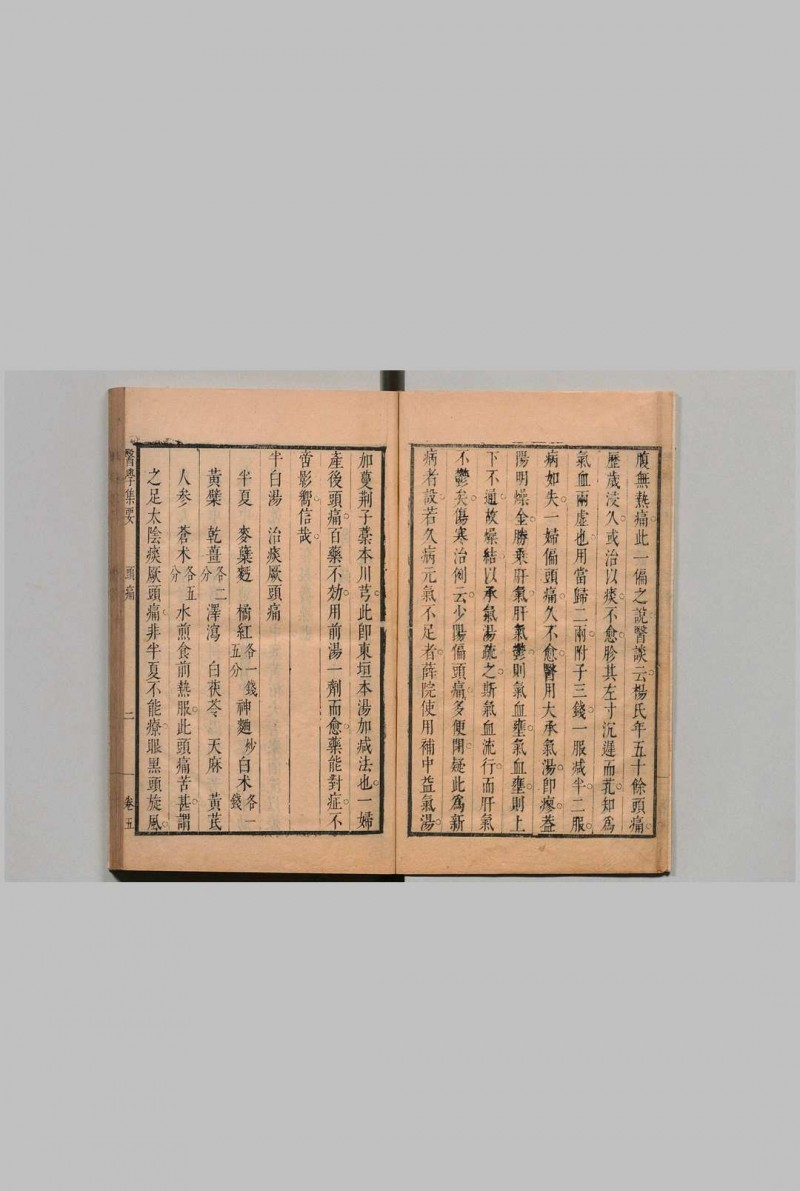 腹無熱痛此一偏之說醫談云楊氏年五十餘頭痛
歷歲浸久或治以痰不愈胗其左寸沉遲而芤知爲
氣血兩虛也用當歸二兩附子三錢一服減半二服
病如失一婦偏頭痛久不愈醫用大承氣湯卽瘳葢
陽明燥金勝乘肝氣肝氣鬱則氣血壅氣血壅則上
下不通故燥結以承氣湯疏之斯氣血流行而肝氣
不鬱矣傷寒治例云少陽偏頭痛多便閉疑此爲新
病者設若久病元氣不足者薛院使用補中益氣湯
加蔓荆子藁本川芎此卽東垣本湯加減法也一婦
產後頭痛百藥不効用前湯一劑而愈藥能對症不
啻影嚮信哉
半白湯　治痰厥頭痛
半夏　麥蘖麪　橘紅各一錢五分神麯炒白术各一錢
黃蘗　乾薑各二分澤瀉　白茯苓　天麻　黃芪
人參　蒼术各五分水煎食前熱服此頭痛苦甚謂
之足太陰痰厥頭痛非半夏不能療眼黑頭旋風
醫學集要　頭痛　二　卷五